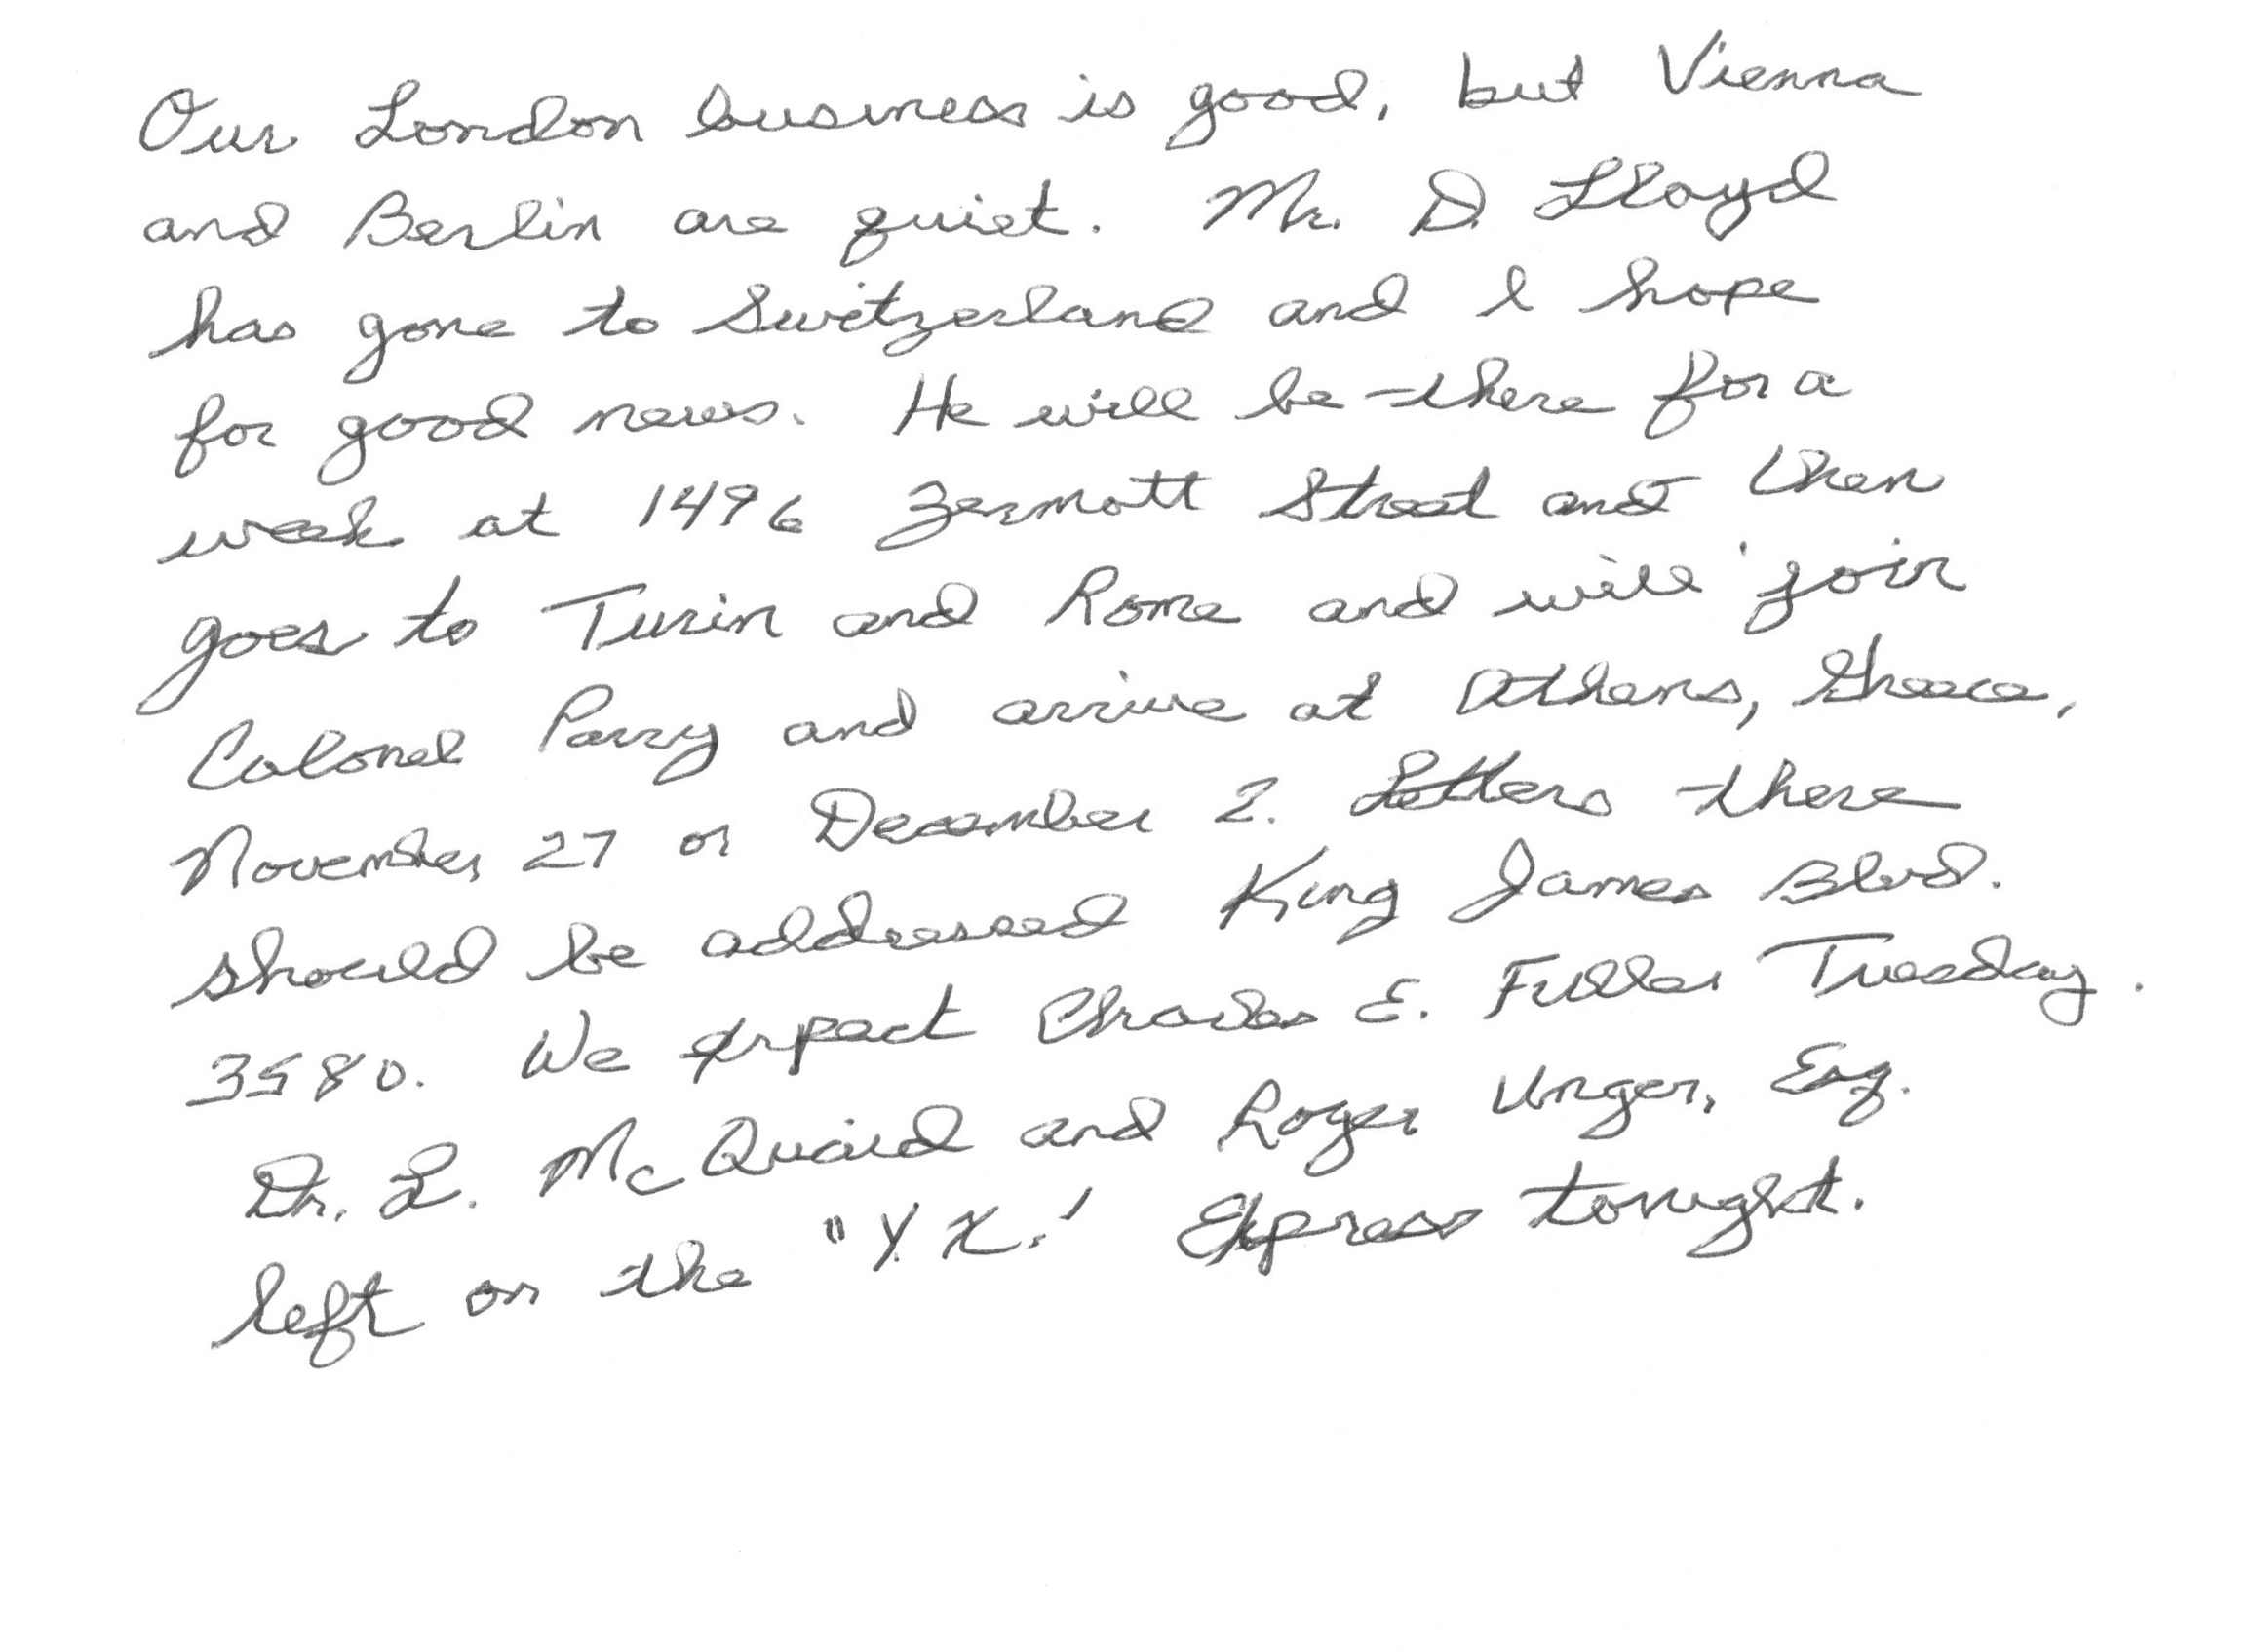 Our London business is good, but Vienna
and Berlin are quiet. Mr. D. Lloyd
has gone to Switzerland and I hope
for good news. He will be there for a
week at 1496 Zermott Street and then
goes to Turin and Rome and will join
Colonel Parry and arrive at Athens, Greece,
November 27 or December 2. Letters there
should be addressed King James Blvd.
3580. We expect Charles E. Fuller Tuesday.
Dr. L. McQuaid and Roger Unger, Esq.
left on the "Y.X." Express tonight.